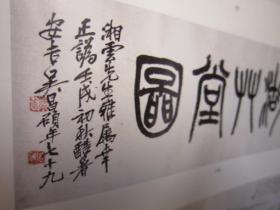 艸堂圖
湘雲先生雅屬率
正譌壬戌初秋醉著
安吉吳昌碩年七十九